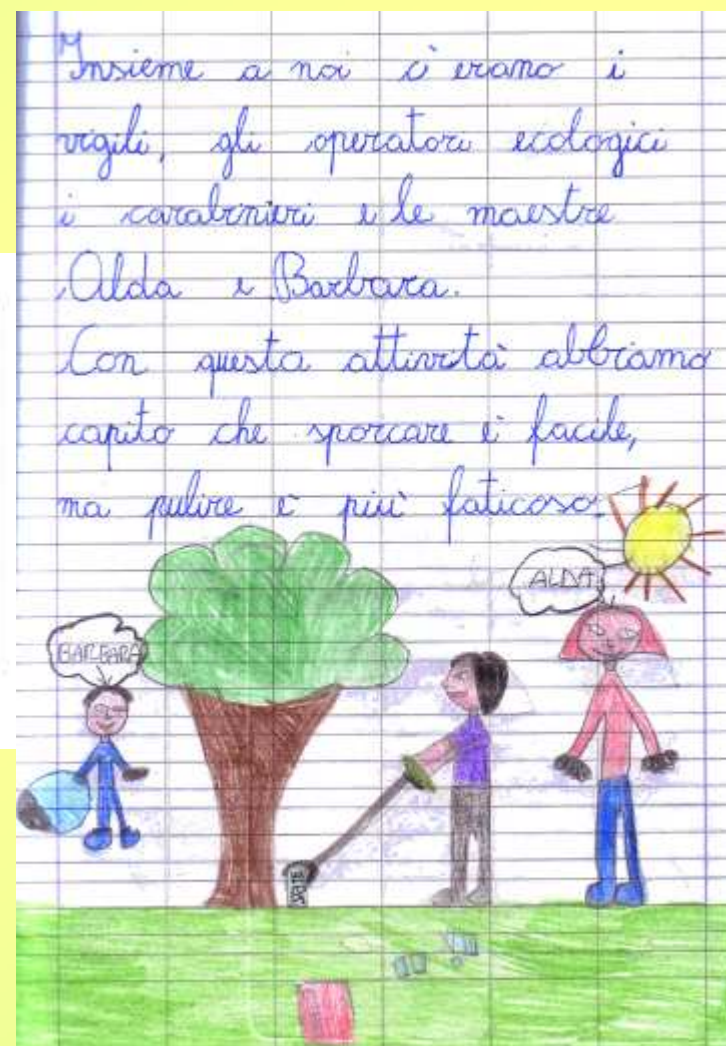 Insieme a noi c'erano i
vigili, gli operatori ecologici
i carabinieri e le maestre
Alda e Barbara.
Con questa attività abbiamo
capito che sporcare è facile,
ma pulire è più faticoso.
ALDA
BARBARA